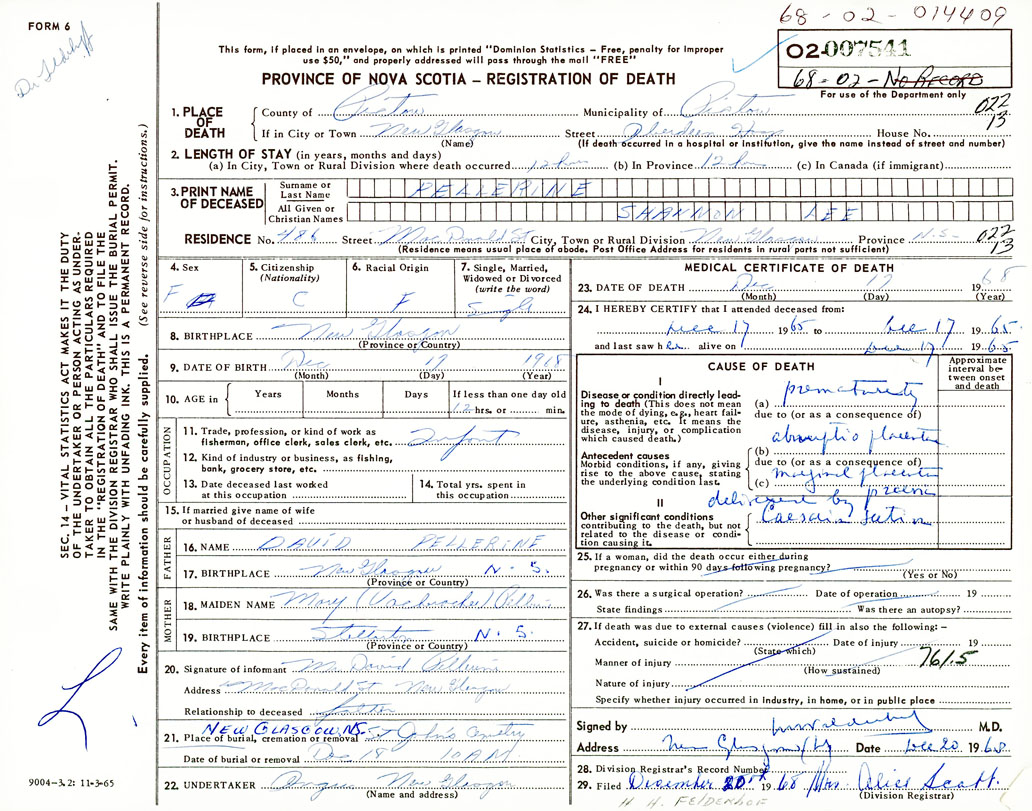 68-02-014409
FORM 6
02-007541
68-02-No RECORD
For use of the Department only
This form, if placed in an envelope, on which is printed "Dominion Statistics – Free, penalty for improper
use $50," and properly addressed will pass through the mail "FREE"
PROVINCE OF NOVA SCOTIA – REGISTRATION OF DEATH
022
13
1. PLACE OF DEATH
County of Pictou Municipality of Pictou
If in City or Town New Glasgow Street Aberdeen Hosp House No.
(Name) (If death occurred in a hospital or institution, give the name instead of street and number)
2. LENGTH OF STAY (in years, months and days)
(a) In City, Town or Rural Division where death occurred 12 hrs (b) In Province 12 hrs (c) In Canada (if immigrant)
3. PRINT NAME OF DECEASED
Surname or Last Name PELLERINE
All Given or Christian Names SHANNON LEE
RESIDENCE No. 486 Street MacDonald St City, Town or Rural Division New Glasgow Province N.S.
(Residence means usual place of abode. Post Office Address for residents in rural parts not sufficient)
022
13
4. Sex F
5. Citizenship (Nationality) C
6. Racial Origin F
7. Single, Married, Widowed or Divorced (write the word) Single
8. BIRTHPLACE New Glasgow
(Province or Country)
9. DATE OF BIRTH Dec 17 1968
(Month) (Day) (Year)
10. AGE in Years Months Days If less than one day old
12 hrs. or min.
OCCUPATION
11. Trade, profession, or kind of work as
fisherman, office clerk, sales clerk, etc. Infant
12. Kind of industry or business, as fishing,
bank, grocery store, etc.
13. Date deceased last worked
at this occupation
14. Total yrs. spent in
this occupation
15. If married give name of wife
or husband of deceased
FATHER
16. NAME DAVID PELLERINE
17. BIRTHPLACE New Glasgow N.S.
(Province or Country)
MOTHER
18. MAIDEN NAME Mary
19. BIRTHPLACE Stellarton N.S.
(Province or Country)
20. Signature of informant M. David Pellerine
Address MacDonald St New Glasgow
Relationship to deceased father
NEW GLASGOW NS.
21. Place of burial, cremation or removal St John's Cemetry
Date of burial or removal Dec 18 10 AM
22. UNDERTAKER New Glasgow
(Name and address)
MEDICAL CERTIFICATE OF DEATH
23. DATE OF DEATH Dec 17 1968
(Month) (Day) (Year)
24. I HEREBY CERTIFY that I attended deceased from:
Dec 17 1965 to Dec 17 1965
and last saw her alive on Dec 17 1965
CAUSE OF DEATH
Approximate interval between onset and death
I
Disease or condition directly lead-
ing to death (This does not mean
the mode of dying, e.g., heart fail-
ure, asthenia, etc. It means the
disease, injury, or complication
which caused death.)
(a) prematurity
due to (or as a consequence of)
abruptio placenta
Antecedent causes
Morbid conditions, if any, giving
rise to the above cause, stating
the underlying condition last.
(b)
due to (or as a consequence of)
(c) marginal placenta
II
delivered by
Caesarian section
Other significant conditions
contributing to the death, but not
related to the disease or condi-
tion causing it.
25. If a woman, did the death occur either during
pregnancy or within 90 days following pregnancy?
(Yes or No)
26. Was there a surgical operation? Date of operation 19
State findings Was there an autopsy?
27. If death was due to external causes (violence) fill in also the following: –
Accident, suicide or homicide? Date of injury 19
(State which)
Manner of injury 761.5
(How sustained)
Nature of injury
Specify whether injury occurred in industry, in home, or in public place
Signed by M.D.
Address New Glasgow Date Dec 20 1968
28. Division Registrar's Record Number
29. Filed December 20th 1968 Mrs. Alice Scott.
(Division Registrar)
H. H. FELDERHOF
SEC. 14 – VITAL STATISTICS ACT MAKES IT THE DUTY
OF THE UNDERTAKER OR PERSON ACTING AS UNDER-
TAKER TO OBTAIN ALL THE PARTICULARS REQUIRED
IN THE "REGISTRATION OF DEATH" AND TO FILE THE
SAME WITH THE DIVISION REGISTRAR WHO SHALL ISSUE THE BURIAL PERMIT.
WRITE PLAINLY WITH UNFADING INK. THIS IS A PERMANENT RECORD.
Every item of information should be carefully supplied. (See reverse side for instructions.)
9004-3.2: 11-3-65